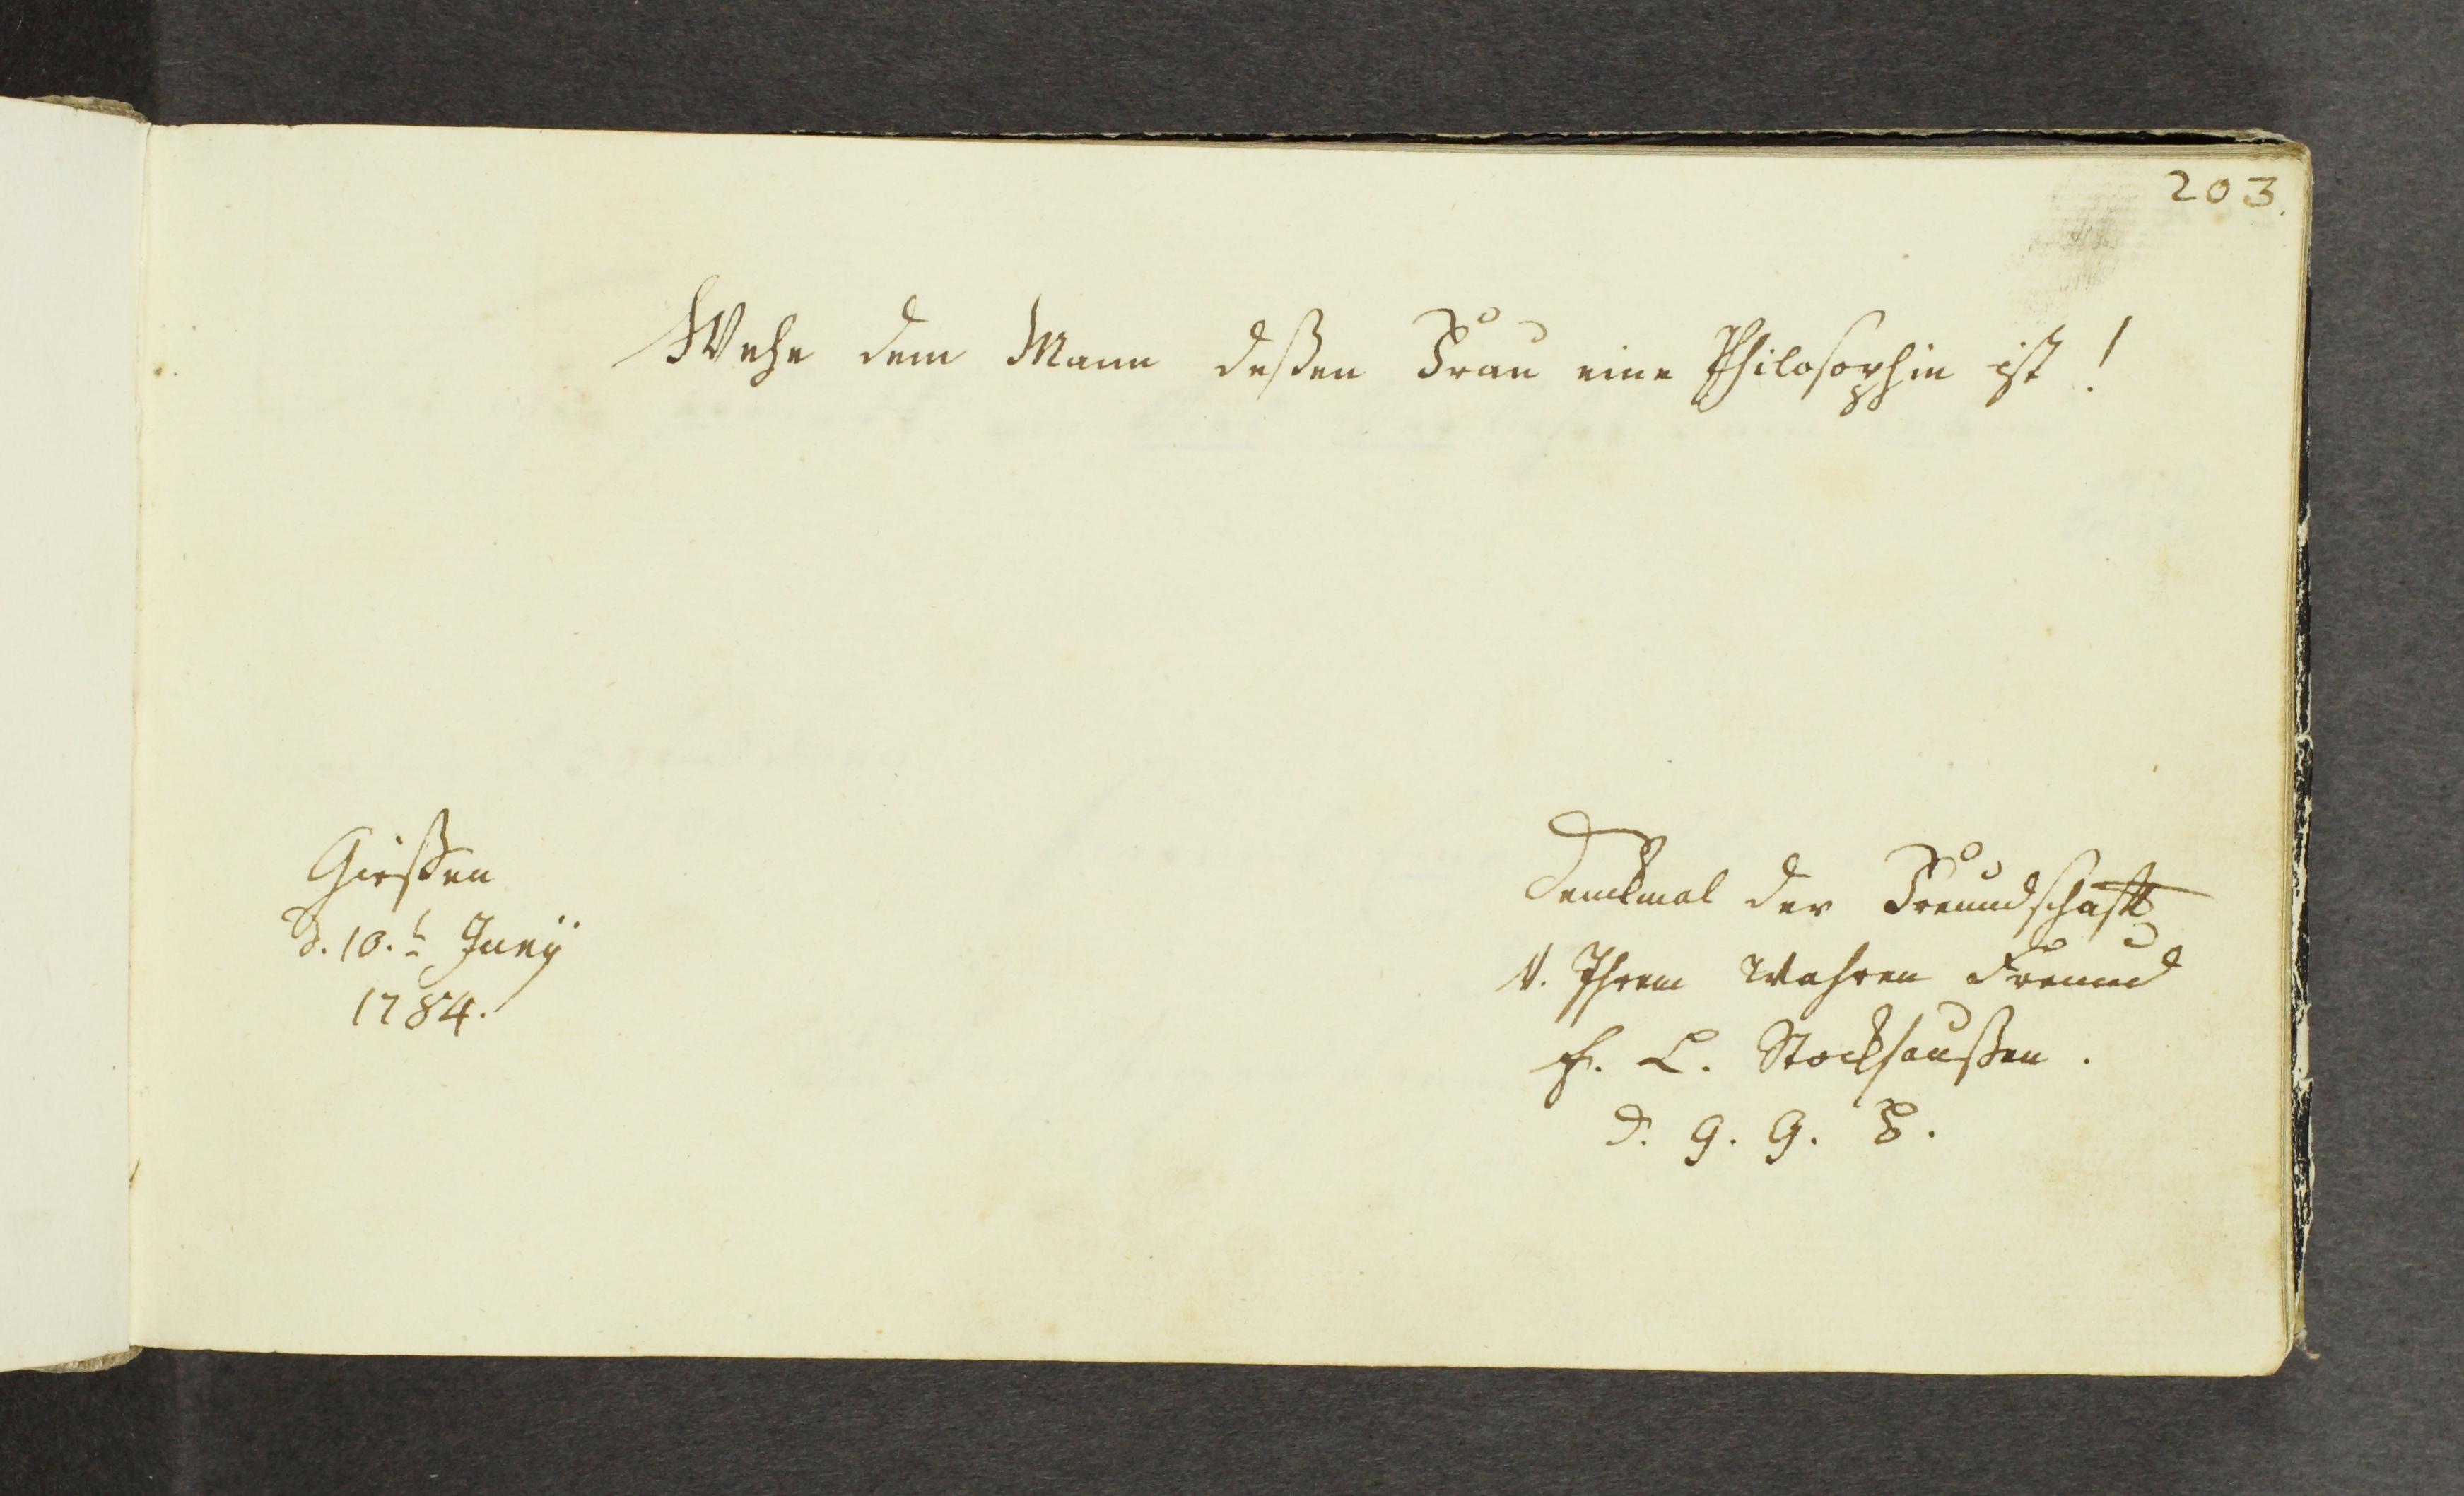 203.
Wehe dem Mann deßen Frau eine Philosophin ist!
Gießen
d. 10.t Junÿ
1784.
Denckmal der Freundschafft
v. Ihrem wahren Freund
F. C. Stockhaußen.
d. G. G. B.